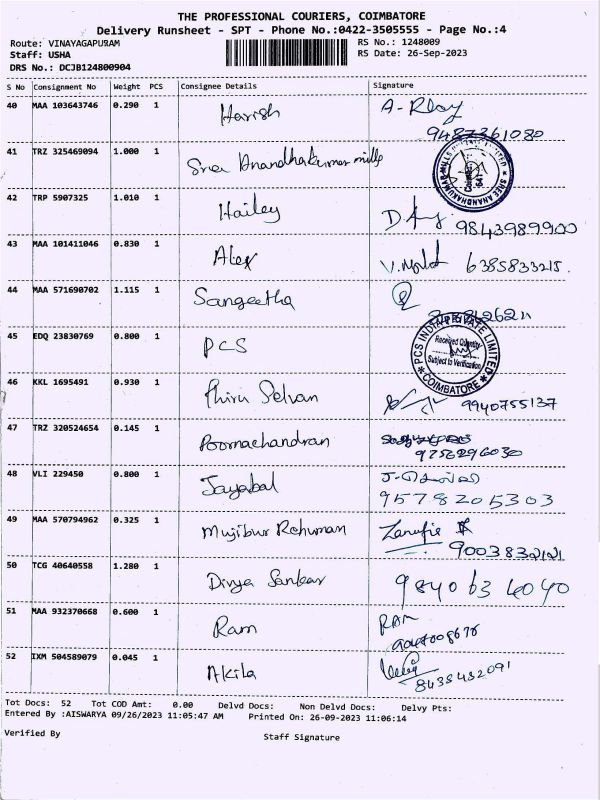 THE PROFESSIONAL COURIERS, COIMBATORE
Delivery Runsheet - SPT - Phone No.:0422-3505555 - Page No.:4
Route: VINAYAGAPURAM RS No.: 1248009
Staff: USHA RS Date: 26-Sep-2023
DRS No.: DCJB124800904
S No Consignment No Weight PCS Consignee Details Signature
40 MAA 103643746 0.290 1 Harish A-
9487361080
41 TRZ 325469094 1.000 1 Sree Anandhakumar mills
SREE ANANDHAKUMAR MILLS LIMITED
42 TRP 5907325 1.010 1 Hailey D. 9843989900
43 MAA 101411046 0.830 1 Alex V. 6385833215.
44 MAA 571690702 1.115 1 Sangeetha
45 EDQ 23830769 0.800 1 PCS
PCS INDIA PRIVATE LIMITED
Received Quantity
Subject to Verification
COIMBATORE
46 KKL 1695491 0.930 1 Thiru Selvan 9940755137
47 TRZ 320524654 0.145 1 Poornachandran
9756296030
48 VLI 229450 0.800 1 Jayabal
9578205303
49 MAA 570794962 0.325 1 Mujibur Rehuman
9003832121
50 TCG 40640558 1.280 1 Divya Sankar 9840634040
51 MAA 932370668 0.600 1 Ram RAM
52 IXM 504589079 0.045 1 Akila
8435432091
Tot Docs: 52 Tot COD Amt: 0.00 Delvd Docs: Non Delvd Docs: Delvy Pts:
Entered By :AISWARYA 09/26/2023 11:05:47 AM Printed On: 26-09-2023 11:06:14
Verified By Staff Signature